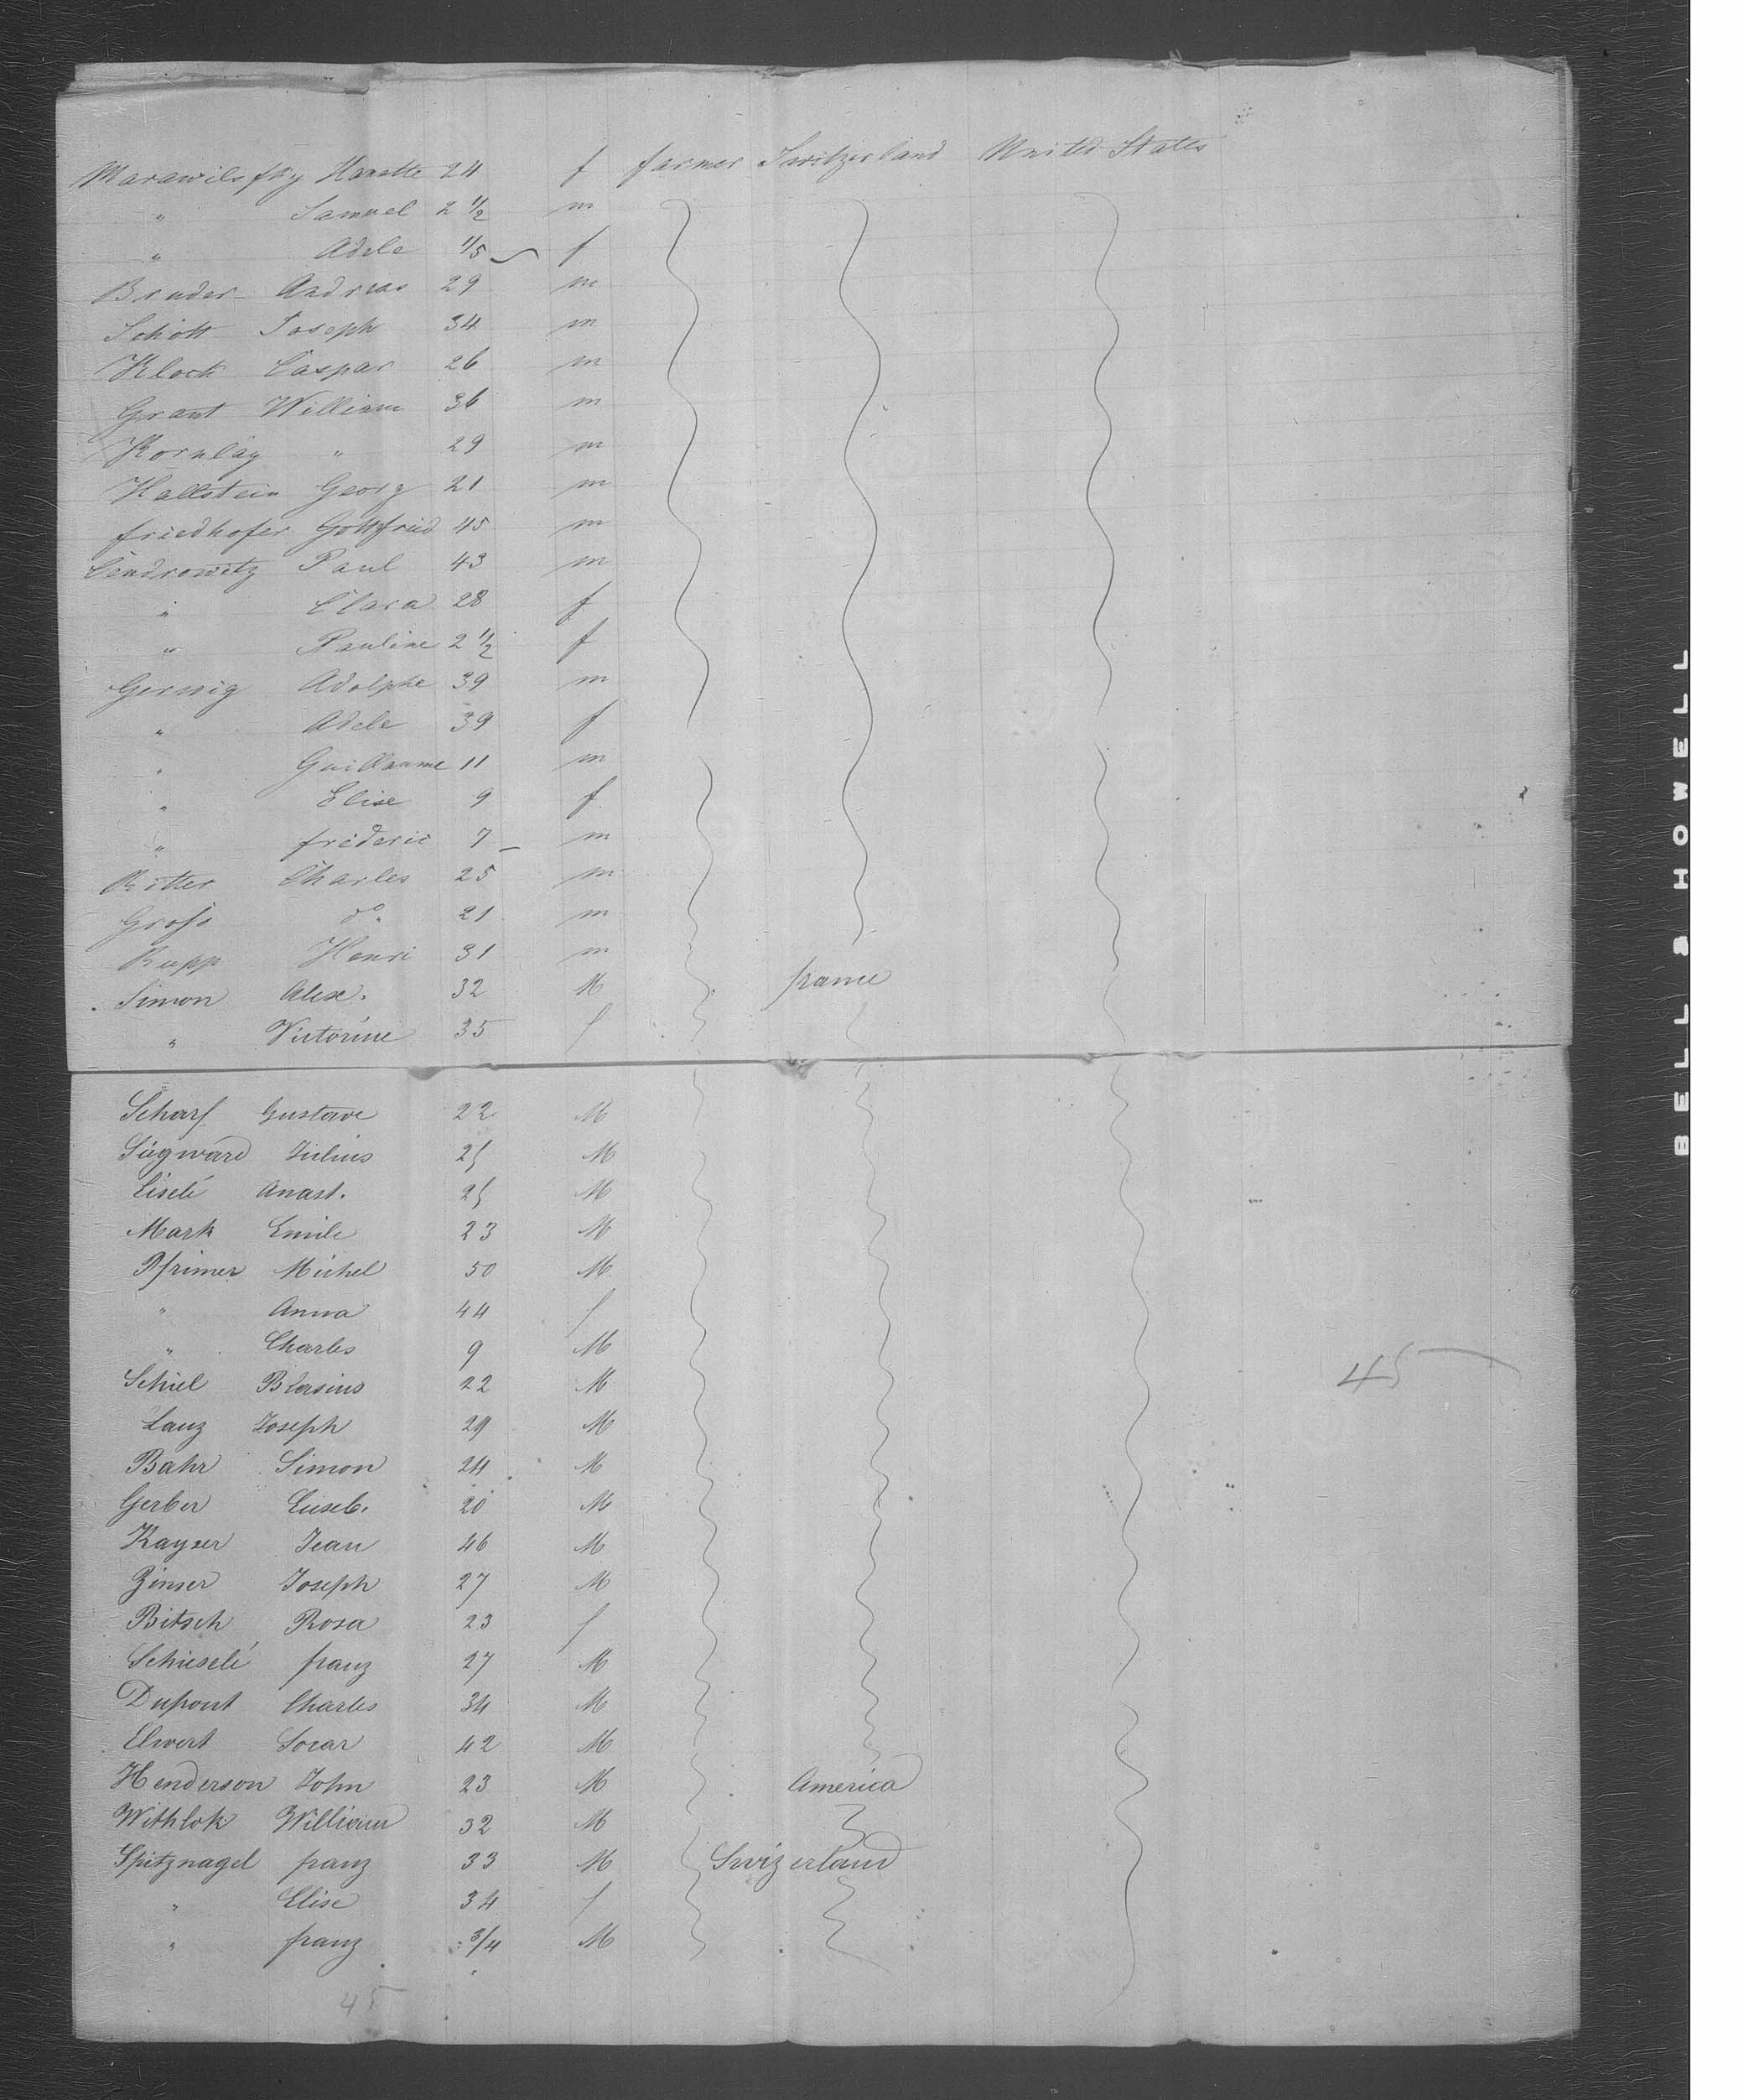 Marawilsky Hanette 24 f farmer Switzerland United States
" Samuel 2 1/2 m
" Adele 1/5 f
Bruder Andreas 29 m
Schott Joseph 34 m
Klock Caspar 26 m
Grant William 36 m
Kornlay " 29 m
Hallstein Georg 21 m
friedhofer Gottfried 45 m
Cendrowitz Paul 43 m
" Clara 28 f
" Pauline 2 1/2 f
Gerwig Adolphe 39 m
" Adele 39 f
" Guillaume 11 m
" Elise 9 f
" fréderic 7 m
Ritter Charles 25 m
Gross do. 21 m
Rupp Henri 31 m
Simon Alex. 32 M france
" Victorine 35 f
Scharf Gustave 22 M
Siegward Julius 25 M
Eiselé Anast. 25 M
Mark Emile 23 M
Pfrimer Michel 50 M
" Anna 44 f
" Charles 9 M
Schiel Blasius 22 M 45
Lanz Joseph 29 M
Bahr Simon 24 M
Gerber Euseb. 20 M
Kayser Jean 46 M
Zinser Joseph 27 M
Bitsch Rosa 23 f
Schieselé franz 27 M
Dupont Charles 34 M
Elwert 42 M
Henderson John 23 M America
Withlok William 32 M
Spitznagel franz 33 M Swizerland
" Elise 34 f
" franz 3/4 M
45
BELL & HOWELL